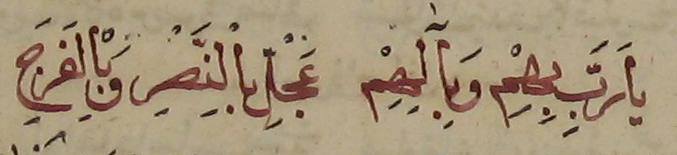 يَا رَبِّ بِهِمْ وَبِآلِهِمْ عَجِّلْ بِالنَّصْرِ وَبِالفَرَجِ